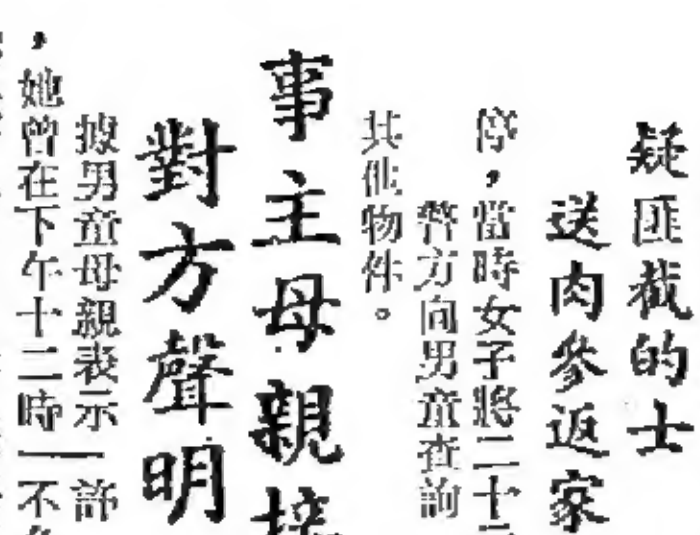 疑匪截的士
送肉參返家
停，當時女子將二十
警方向男童查詢
其他物件。
事主母親接
對方聲明
據男童母親表示一許
，她曾在下午十二時一不